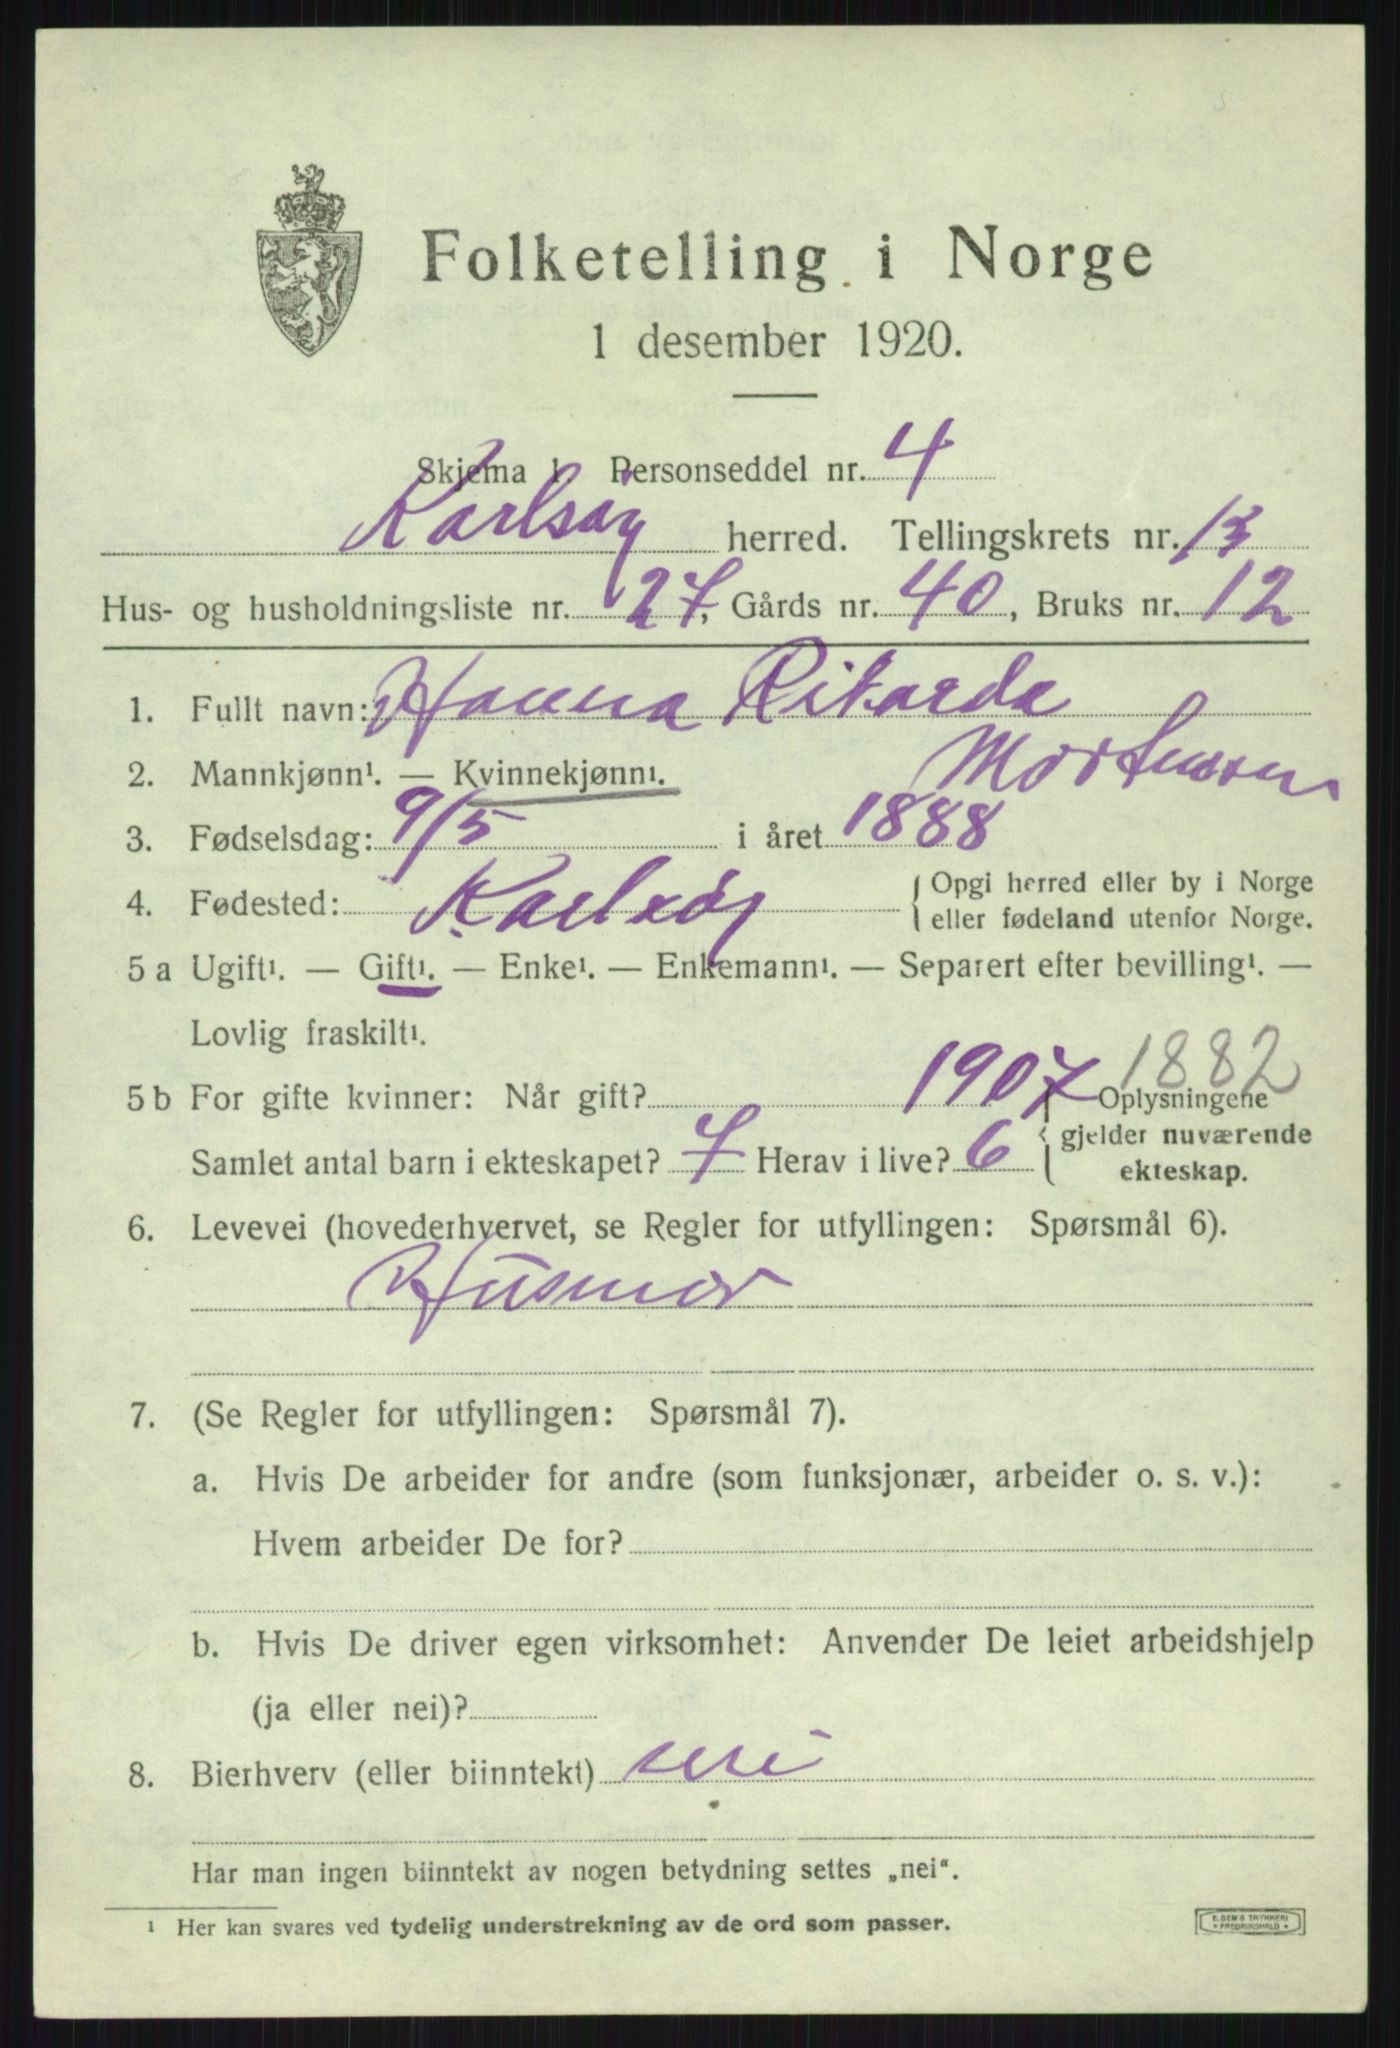 Folketelling i Norge
1 desember 1920.
Skjema 1 Personseddel nr. 4
Karlsøy herred. Tellingskrets nr. 13
Hus- og husholdningsliste nr. 27, Gårds nr. 40, Bruks nr. 12
1. Fullt navn: Hanna Rikarda
Mortensen
2. Mannkjønn¹. — Kvinnekjønn¹.
3. Fødselsdag: 9/5 i året 1888
4. Fødested: Karlsøy { Opgi herred eller by i Norge
eller fødeland utenfor Norge.
5 a Ugift¹. — Gift¹. — Enke¹. — Enkemann¹. — Separert efter bevilling¹. —
Lovlig fraskilt¹.
1882
5 b For gifte kvinner: Når gift? 1907 { Oplysningene
gjelder nuværende
Samlet antal barn i ekteskapet? 7 Herav i live? 6 ekteskap.
6. Levevei (hovederhvervet, se Regler for utfyllingen: Spørsmål 6).
Husmor
7. (Se Regler for utfyllingen: Spørsmål 7).
a. Hvis De arbeider for andre (som funksjonær, arbeider o. s. v.):
Hvem arbeider De for?
b. Hvis De driver egen virksomhet: Anvender De leiet arbeidshjelp
(ja eller nei)?
8. Bierhverv (eller biinntekt) nei
Har man ingen biinntekt av nogen betydning settes „nei“.
¹ Her kan svares ved tydelig understrekning av de ord som passer.
E. SEM'S TRYKKERI
FREDRIKSHALD